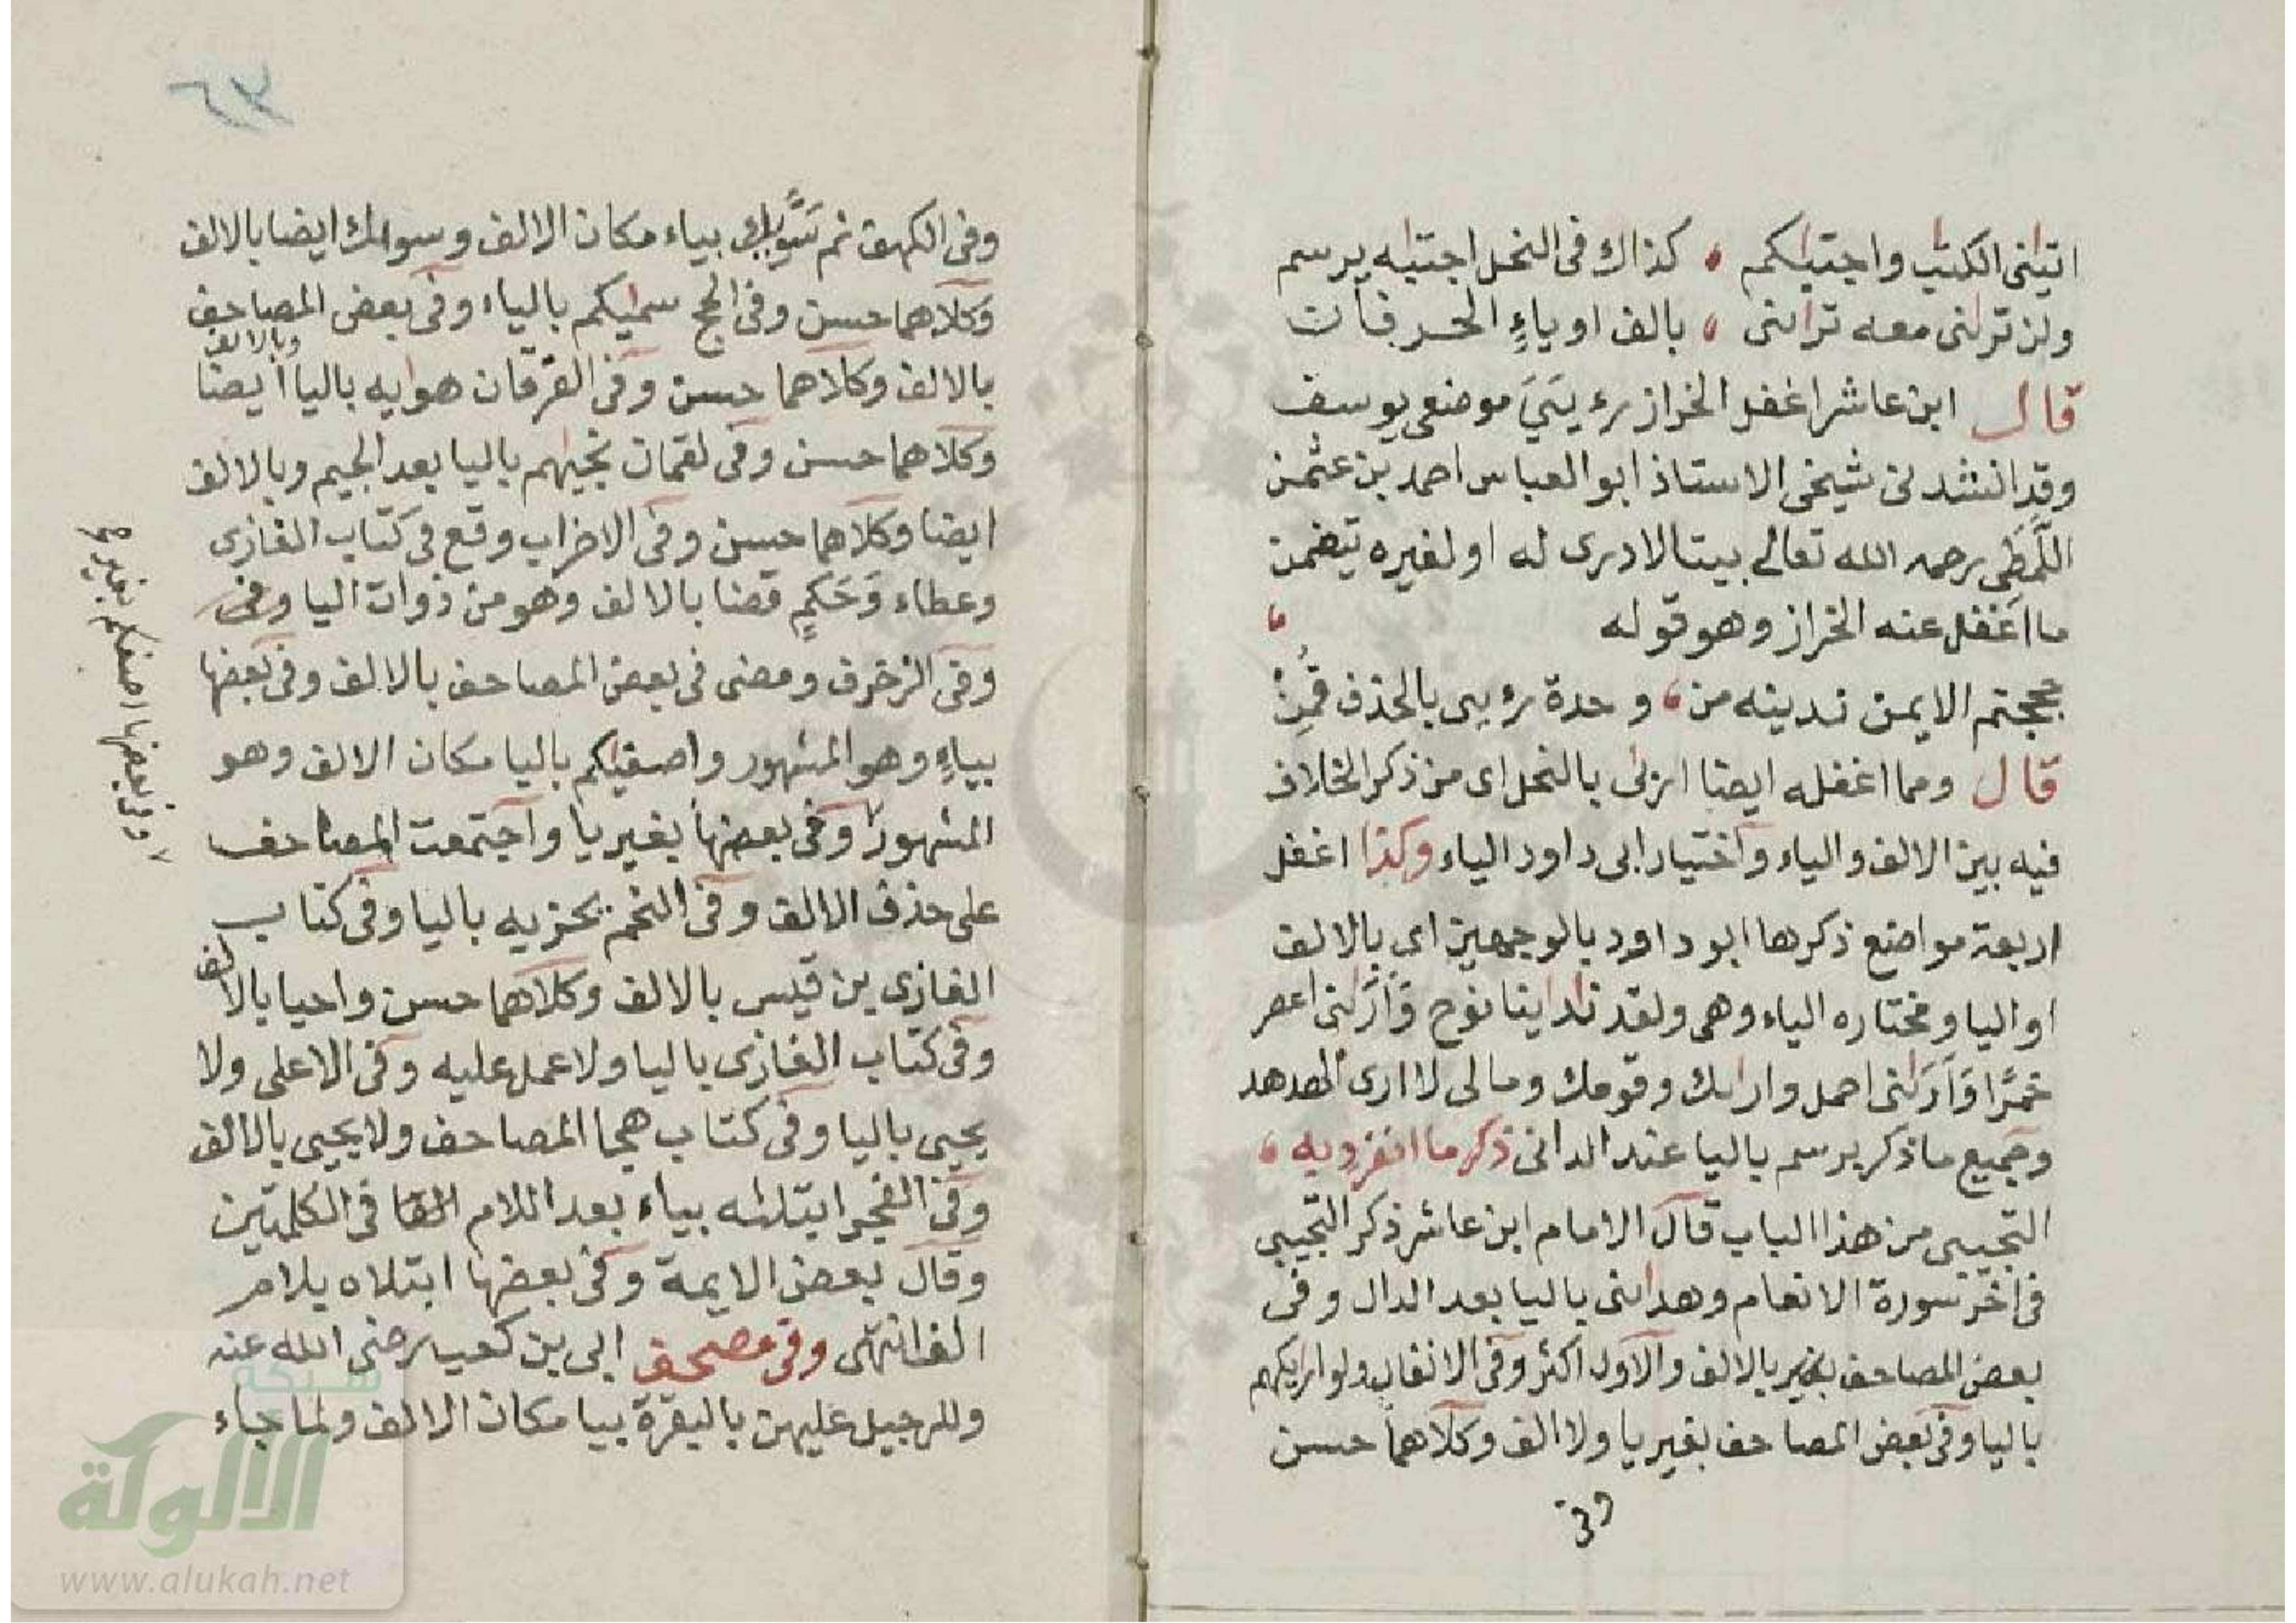 اتينى الكتب واجتبيكم ، كذاك فى النحل اجتبيه يرسم
ولن ترينى معه ترانى ، بالف او ياء الحرفان
قال ابن عاشر اغفل الخراز رء يـٰيَ موضعى يوسف
وقد انشدنى شيخى الاستاذ ابو العباس احمد بن عثمن
اللَّمَطِى رحمه الله تعالى بيتا لا ادرى له او لغيره يتضمن
ما اغفل عنه الخراز وهو قوله ،
حججتم الايمن ندينه من ، وحدة رء يى بالحذف قَمِنْ
قال ومما اغفله ايضا اربى بالنحل اى من ذكر الخلاف
فيه بين الالف والياء واختيار ابى داود الياء وكذا اغفل
اربعة مواضع ذكرها ابو داود بالوجهين اى بالالف
او اليا ومختاره الياء وهى ولقد نادينا نوح وَأَرَانى اعصر
خمرًا وَأَرَانى احمل واراك وقومك ومالى لا ارى الهدهد
وجميع ما ذكر يرسم باليا عند الدانى ذكر ما انفرد به ،
التجيبى من هذا الباب قال الامام ابن عاشر ذكر التجيبى
فى اخر سورة الانعام وهدانى باليا بعد الدال وفى
بعض المصاحف بالالف والاول اكثر وفى الانفال ولو اريكهم
باليا وفى بعض المصاحف بغير يا ولا الف وكلاهما حسن
وفى
وفى الكهف ثم سَوَّيك بياء مكان الالف وسواك ايضا بالالف
وكلاهما حسن وفى الحج سميكم بالياء وفى بعض المصاحف
بالالف وكلاهما حسن وفى الفرقان هويه باليا وبالالف ايضا
وكلاهما حسن وفى لقمان نجيهم باليا بعد الجيم وبالالف
ايضا وكلاهما حسن وفى الاحزاب وقع فى كتاب الغازى
وعطاء وَحَكمٍ قضا بالالف وهو من ذوات اليا وفى
وفى الزخرف ومضى فى بعض المصاحف بالالف وفى بعضها
بياءٍ وهو المشهور واصفيكم باليا مكان الالف وهو
المشهور وفى بعضها بغير يا واجتمعت المصاحف
على حذف الالف وفى النجم يجزيه باليا وفى كتاب
الغازى بن قيس بالالف وكلاهما حسن واحيا بالالف
وفى كتاب الغازى باليا ولا عمل عليه وفى الاعلى ولا
يحيى باليا وفى كتاب هجا المصاحف ولا يحيى بالالف
وفى الفجر ابتليه بياء بعد اللام الفا فى الكلمتين
وقال بعض الايمة وفى بعضها ابتلاه بلام
الف انتهى وفى مصحف ابى بن كعب رضى الله عنه
وللرجيل عليهن بالبقرة بيا مكان الالف ولما جاء
وفى بعضها اصفكم بغير
شبكة
الألوكة
www.alukah.net